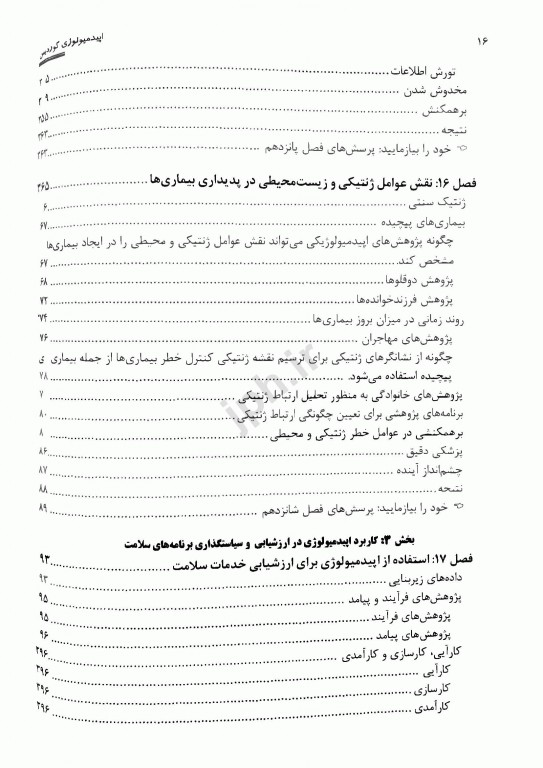 ۱۶ اپیدمیولوژی گوردیس
تورش اطلاعات ۵
مخدوش شدن ۹
برهمکنش ۲۵۵
نتیجه ۲۶۳
خود را بیازمایید: پرسش‌های فصل پانزدهم ۲۶۳
فصل ۱۶: نقش عوامل ژنتیکی و زیست‌محیطی در پدیداری بیماری‌ها ۲۶۵
ژنتیک سنتی ۶
بیماری‌های پیچیده ۶۷
چگونه پژوهش‌های اپیدمیولوژیکی می‌تواند نقش عوامل ژنتیکی و محیطی را در ایجاد بیماری‌ها
مشخص کند ۶۷
پژوهش دوقلوها ۶۸
پژوهش فرزندخوانده‌ها ۷۲
روند زمانی در میزان بروز بیماری‌ها ۷۴
پژوهش‌های مهاجران ۷۶
چگونه از نشانگرهای ژنتیکی برای ترسیم نقشه ژنتیکی کنترل خطر بیماری‌ها از جمله بیماری ی
پیچیده استفاده می‌شود. ۷۸
پژوهش‌های خانوادگی به منظور تحلیل ارتباط ژنتیکی ۷
برنامه‌های پژوهشی برای تعیین چگونگی ارتباط ژنتیکی ۸۰
برهمکنشی در عوامل خطر ژنتیکی و محیطی ۸
پزشکی دقیق ۸۶
چشم‌انداز آینده ۸۷
نتیجه ۸۸
خود را بیازمایید: پرسش‌های فصل شانزدهم ۸۹
بخش ۳: کاربرد اپیدمیولوژی در ارزشیابی و سیاستگذاری برنامه‌های سلامت
فصل ۱۷: استفاده از اپیدمیولوژی برای ارزشیابی خدمات سلامت ۹۳
داده‌های زیربنایی ۹۳
پژوهش‌های فرآیند و پیامد ۹۵
پژوهش‌های فرآیند ۹۵
پژوهش‌های پیامد ۹۶
کارآیی، کارسازی و کارآمدی ۲۹۶
کارآیی ۲۹۶
کارسازی ۲۹۶
کارآمدی ۲۹۶
jph.ir